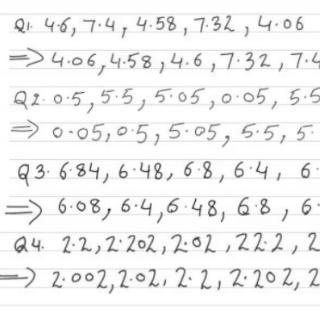 Q1. 4.6, 7.4, 4.58, 7.32, 4.06
=> 4.06, 4.58, 4.6, 7.32, 7.4
Q2. 0.5, 5.5, 5.05, 0.05, 5.5
=> 0.05, 0.5, 5.05, 5.5, 5.
Q3. 6.84, 6.48, 6.8, 6.4, 6.
=> 6.08, 6.4, 6.48, 6.8, 6.
Q4. 2.2, 2.202, 2.02, 22.2, 2
=> 2.002, 2.02, 2.2, 2.202, 2